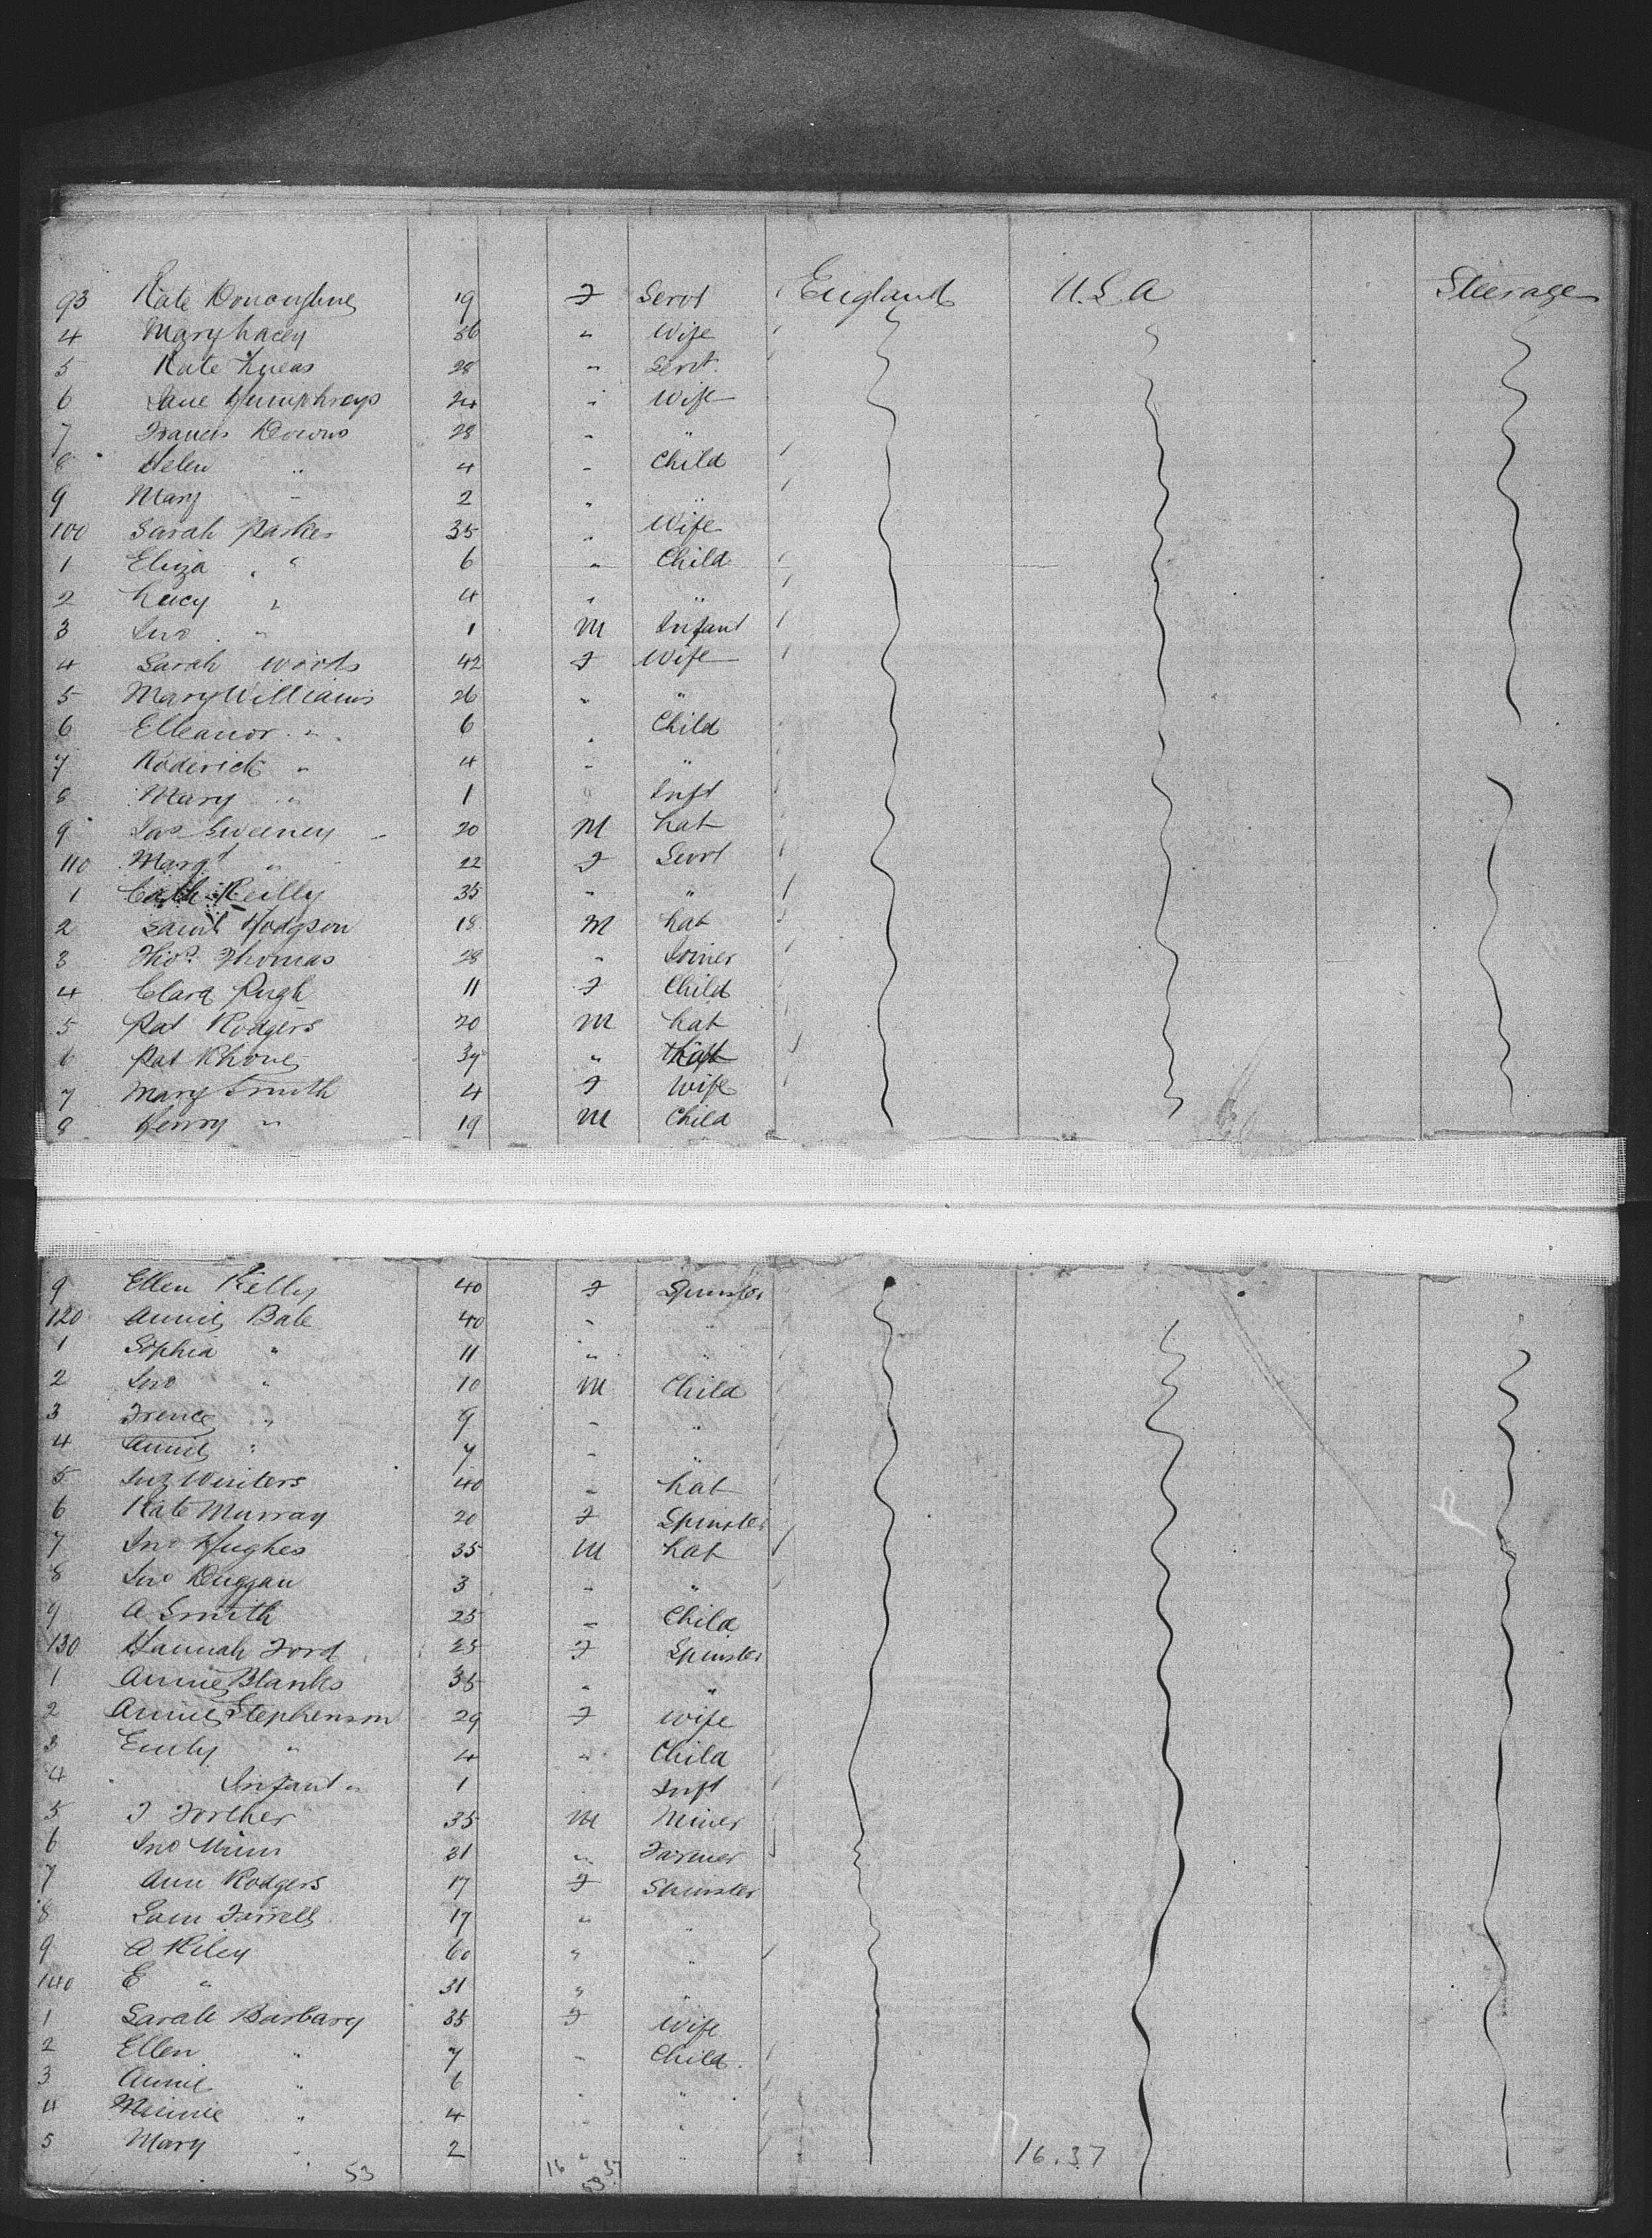 93 Kate Donoughue 19 F Servt England U.S.A Steerage
4 Mary Lacey 56 " Wife
5 Kate Lucas 28 " Servt.
6 Jane Humphreys 24 " Wife
7 Francis Downs 28 " "
8 Helen " 4 " Child
9 Mary " 2 " "
100 Sarah Parker 35 " Wife
1 Eliza " 6 " Child
2 Lucy " 4 " "
3 Jno " 1 M Infant
4 Sarah Woods 42 F Wife
5 Mary Williams 26 " "
6 Elleanor " 6 " Child
7 Roderick " 4 " "
8 Mary " 1 " Inft
9 Jas Sweeney 20 M Lab
110 Margt " 22 F Servt
1 Cath Reilly 35 " "
2 Saml Hodgson 18 M Lab
3 Thos Thomas 28 " Joiner
4 Clara Pugh 11 F Child
5 Pat Rodgers 20 M Lab
6 Pat Rhone 39 "
7 Mary Smith 4 F Wife
8 Henry " 19 M Child
9 Ellen Kelly 40 F Spinster
120 Annie Bale 40 " "
1 Sophia " 11 " "
2 Jno " 10 M Child
3 " 9 " "
4 Annie " 7 " "
5 Winters 40 " Lab
6 Kate Murray 20 F Spinster
7 Jno Hughes 35 M Lab
8 Jno Duggan 3 " "
9 A Smith 25 " Child
130 Hannah Ford 25 F Spinster
1 Annie Blanks 35 " "
2 Annie Stephenson 29 F Wife
3 Emily " 4 " Child
4 Infant " 1 Inft
5 J 35 M Miner
6 Jno 31 " Farmer
7 Ann Rodgers 17 F Spinster
8 Sam Farrell 17 " "
9 A Riley 60 " "
140 E " 31 " "
1 Sarah Barbary 35 F Wife
2 Ellen " 7 " Child
3 Annie " 6 " "
4 Minnie " 4 " "
5 Mary " 2 " "
53 16 37 16.37
53